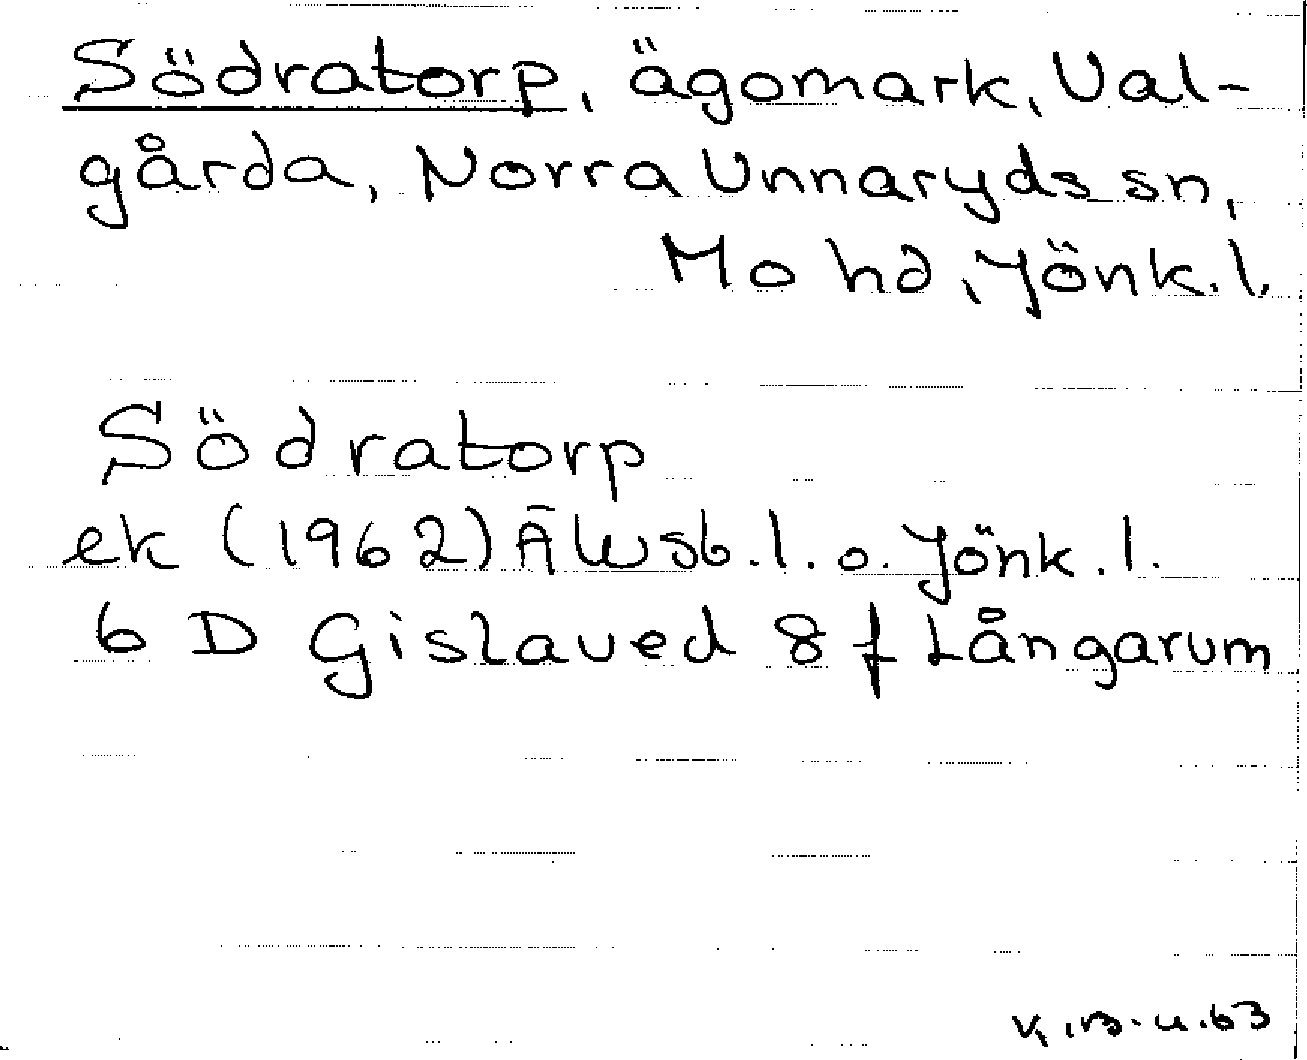 Södratorp, ägomark, Val-
gårda, Norra Unnaryds sn,
Mo hd, Jönk.l.
Södratorp
ek (1962) Älvsb.l. o. Jönk.l.
6 D Gislaved 8 f Långarum